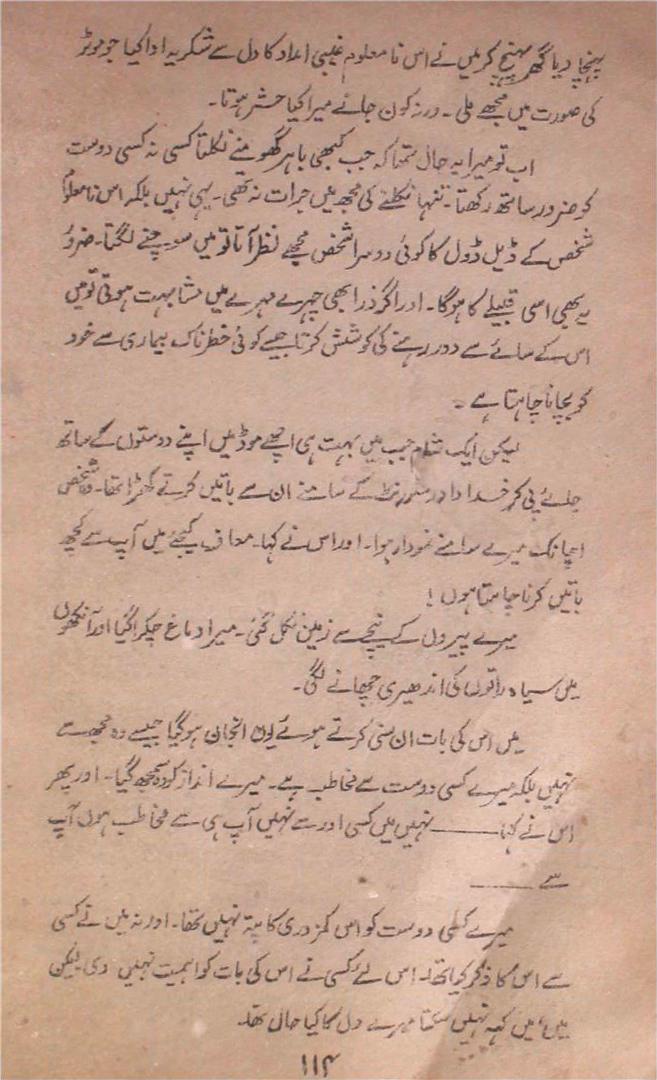 پہنچا دیا گھر پہنچ کر میں نے اس نا معلوم غیبی امداد کا دل سے شکریہ ادا کیا جو موٹر
کی صورت میں مجھے ملی۔ ورنہ کون جانے میرا کیا حشر ہوتا۔
اب تو میرا یہ حال تھا کہ جب کبھی باہر گھومنے نکلتا کسی نہ کسی دوست
کو ضرور ساتھ رکھتا۔ تنہا نکلنے کی مجھ میں جرات نہ تھی۔ یہی نہیں بلکہ اس نا معلوم
شخص کے ڈیل ڈول کا کوئی دوسرا شخص مجھے نظر آتا تو میں سوچنے لگتا۔ ضرور
یہ بھی اسی قبیلے کا ہوگا۔ اور اگر ذرا بھی چہرے مہرے میں مشابہت ہوتی تو میں
اس کے سائے سے دور رہنے کی کوشش کرتا جیسے کوئی خطرناک بیماری سے خود
کو بچانا چاہتا ہے۔
لیکن ایک شام جب میں بہت ہی اچھے موڈ میں اپنے دوستوں کے ساتھ
چائے پی کر خدا داد ریسٹورنٹ کے سامنے ان سے باتیں کرتے کھڑا تھا۔ وہ شخص
اچانک میرے سامنے نمودار ہوا۔ اور اس نے کہا۔ معاف کیجئے میں آپ سے کچھ
باتیں کرنا چاہتا ہوں!
میرے پیروں کے نیچے سے زمین نکل گئی۔ میرا دماغ چکرا گیا اور آنکھوں
میں سیاہ راتوں کی اندھیری چھانے لگی۔
میں اس کی بات ان سنی کرتے ہوئے یوں انجان ہو گیا جیسے وہ مجھ سے
نہیں بلکہ میرے کسی دوست سے مخاطب ہے۔ میرے انداز کو وہ سمجھ گیا۔ اور پھر
اس نے کہا ـــــــ نہیں میں کسی اور سے نہیں آپ ہی سے مخاطب ہوں آپ
سے ـــــــ
میرے کسی دوست کو اس کمزوری کا پتہ نہیں تھا۔ اور نہ میں نے کسی
سے اس کا ذکر کیا تھا۔ اس لئے کسی نے اس کی بات کو اہمیت نہیں دی لیکن
میں، میں کہہ نہیں سکتا میرے دل کا کیا حال تھا۔
۱۱۴